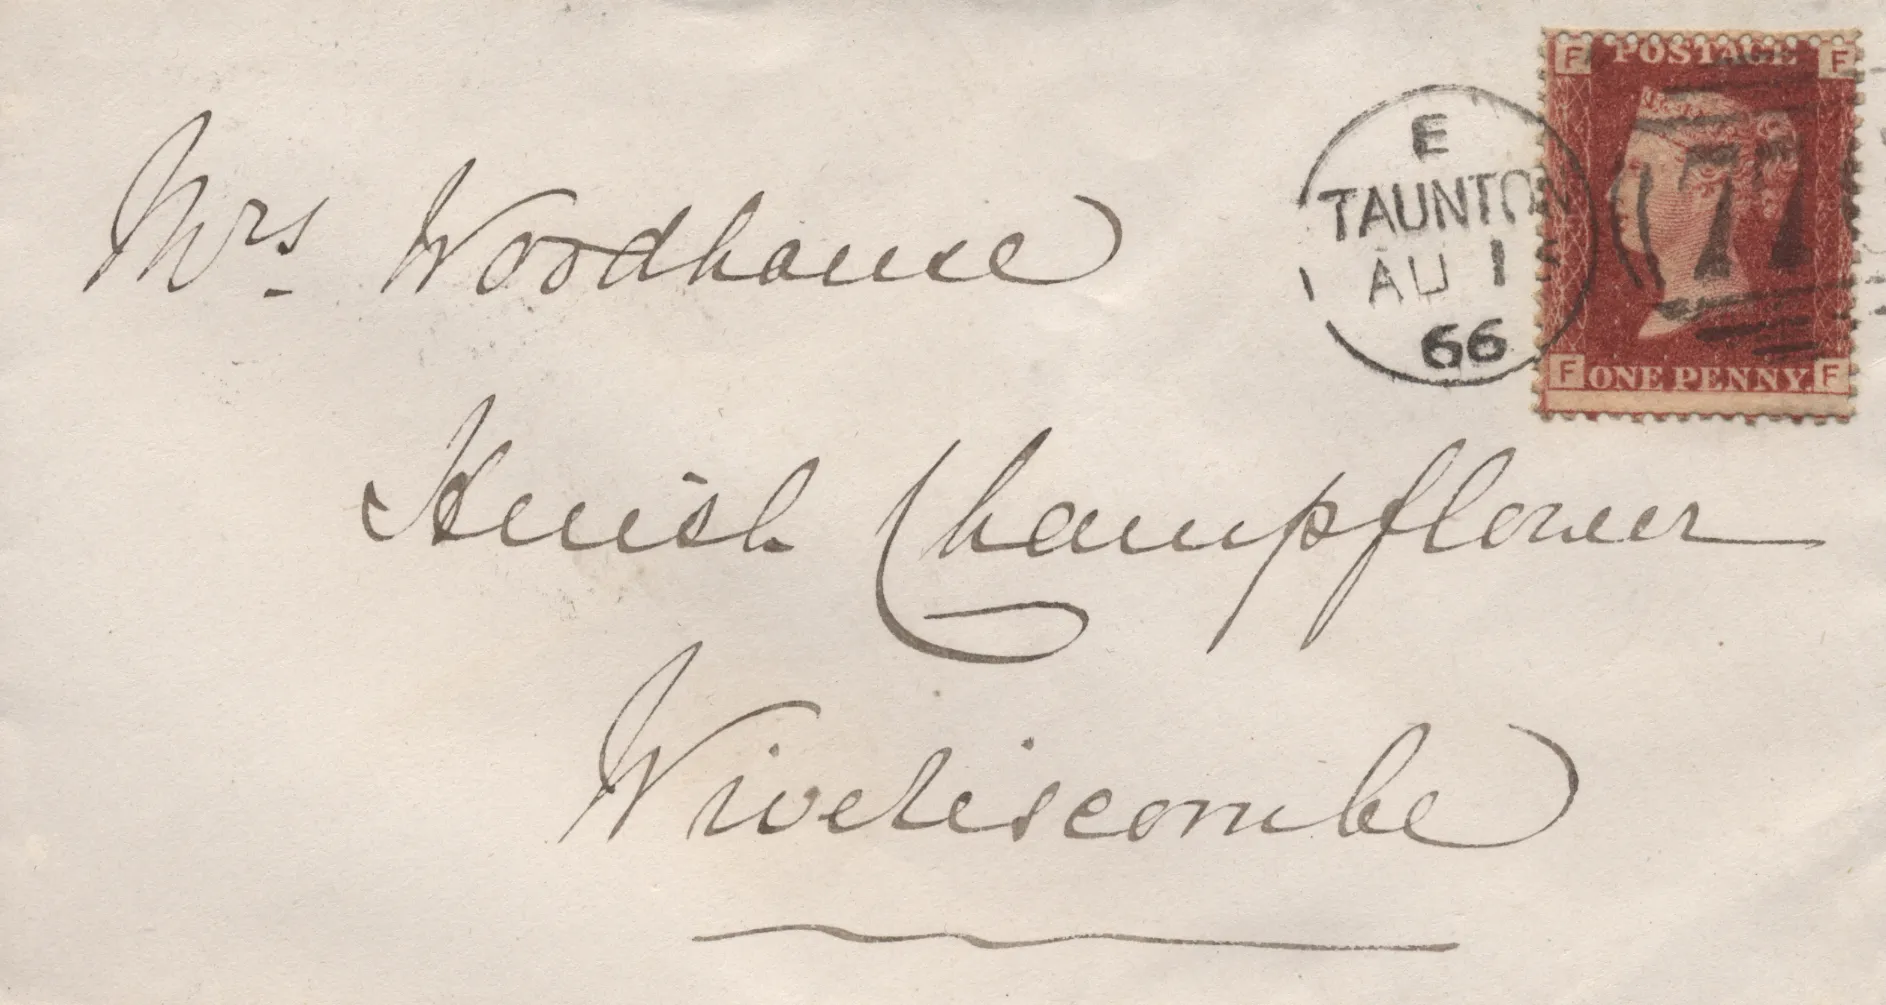 Mrs. Woodhouse
Huish Champflower
Wiveliscombe
E
TAUNTON
AU 1
66
F POSTAGE F
77
F ONE PENNY. F